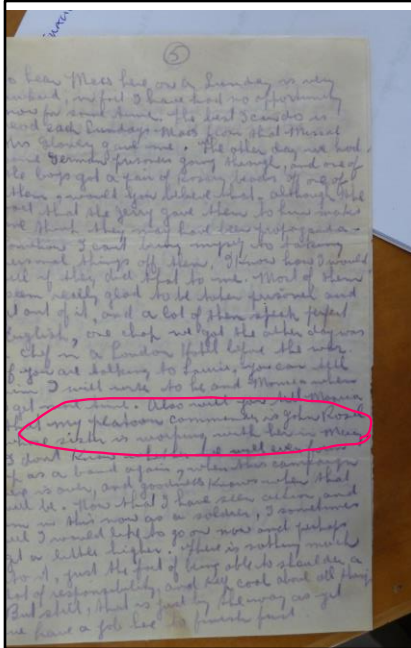 5
hear Mass here on a Sunday is very
, in fact I have had no opportunity
now for some time. The best I can do is
read each Sundays Mass from that Missal
Mrs gave me. The other day we had
some German prisoners going through, and one of
the boys got a pair of rosary beads off one of
them, would you believe that. Although the
fact that the Jerry gave them to him makes
me think they may have been propaganda.
I can't bring myself to taking
personal things off them, I know how I would
feel if they did that to me. Most of them
seem really glad to be taken personel and
out of it, and a lot of them speak perfect
English, one chap we got the other day was
chef in a London Hotel before the war.
If you are talking to you can tell
I will write to he and Monica when
get more time. Also will you tell Monica
that my platoon commander is John
whose sister is working with her in
I don't know whether we will ever
up as a band again, when this campaign
is over, and goodness knows when that
will be. Now that I have seen action, and
in this now as a soldier, I sometimes
feel I would like to go on now and perhaps
get a little higher. There is nothing much
to it, just the fact of being able to shoulder a
lot of responsibility, and keep cool about all things
But still, that is just by the way as yet
we have a job here to finish first.